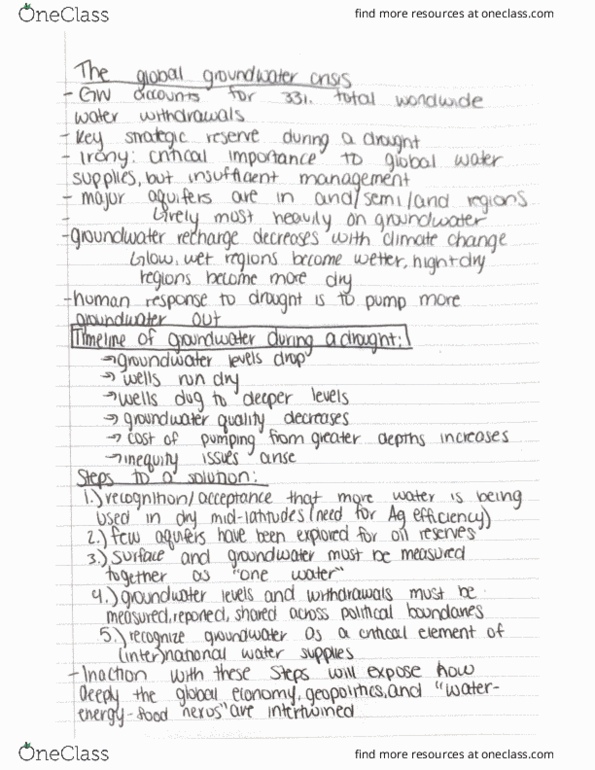 OneClass find more resources at oneclass.com
The global groundwater crisis
- GW accounts for 33%. total worldwide
water withdrawals
- Key strategic reserve during a drought
- Irony: critical importance to global water
supplies, but insufficient management
- major aquifers are in arid/semi/arid regions
- ↳rely most heavily on groundwater
- groundwater recharge decreases with climate change
↳low, wet regions become wetter, high+dry
regions become more dry
- human response to drought is to pump more
groundwater out
Timeline of groundwater during a drought:
→ groundwater levels drop
→ wells run dry
→ wells dug to deeper levels
→ groundwater quality decreases
→ cost of pumping from greater depths increases
→ inequity issues arise
Steps to a solution:
1.) recognition/acceptance that more water is being
used in dry mid-latitudes (need for Ag efficiency)
2.) few aquifers have been explored for oil reserves
3.) surface and groundwater must be measured
together as "one water"
4.) groundwater levels and withdrawals must be
measured, reported, shared across political boundaries
5.) recognize groundwater as a critical element of
(inter)national water supplies
- Inaction with these steps will expose how
deeply the global economy, geopolitics, and "water-
energy-food nexus" are intertwined
OneClass find more resources at oneclass.com